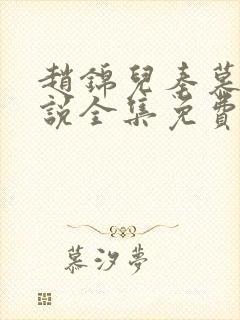 趙錦兒秦慕
說全集免費
慕汐夢